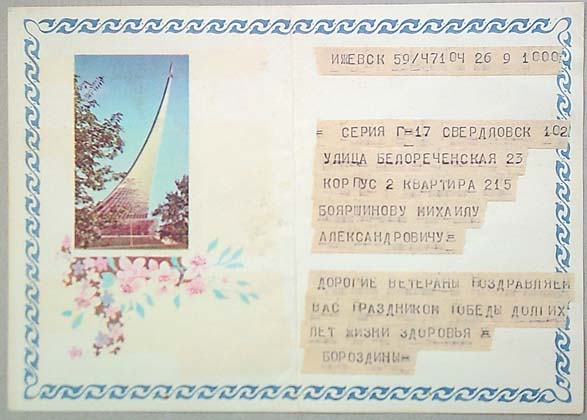 ИЖЕВСК 59/47104 26 9 1000
= СЕРИЯ Г=17 СВЕРДЛОВСК 102
УЛИЦА БЕЛОРЕЧЕНСКАЯ 23
КОРПУС 2 КВАРТИРА 215
БОЯРШИНОВУ МИХАИЛУ
АЛЕКСАНДРОВИЧУ=
ДОРОГИЕ ВЕТЕРАНЫ ПОЗДРАВЛЯЕМ
ВАС ПРАЗДНИКОМ ПОБЕДЫ ДОЛГИХ
ЛЕТ ЖИЗНИ ЗДОРОВЬЯ =
БОРОЗДИНЫ=